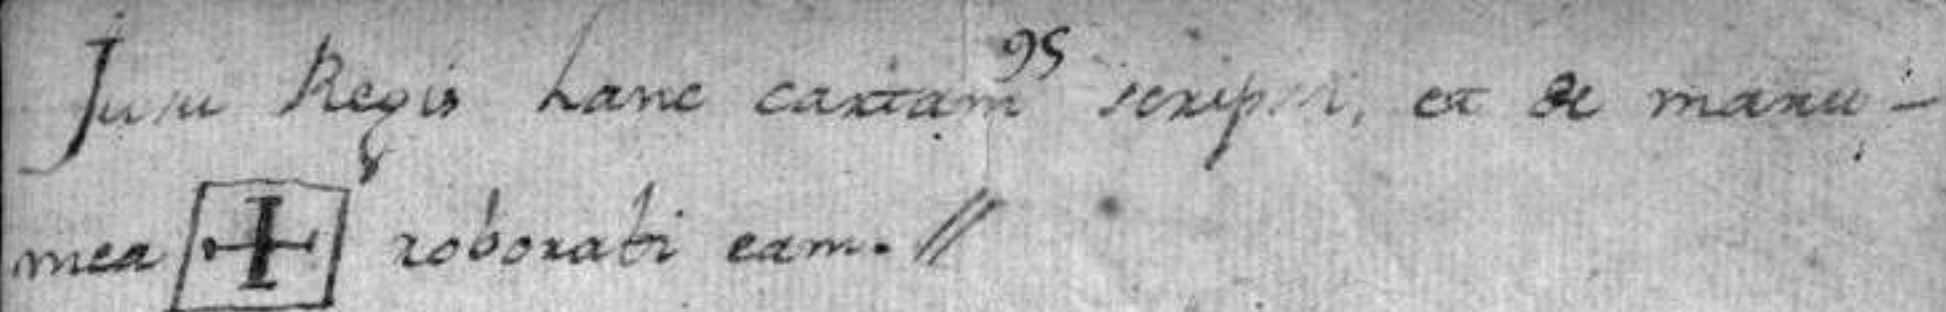 Jussu Regis hanc cartam 95 scripsi, et de manu-
mea roborabi eam.//